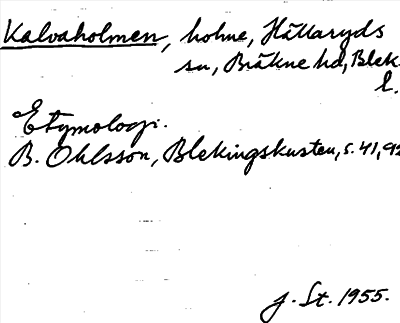 Kalvaholmen, holme, Hällaryds
sn, Bräkne hd, Blek.
l.
Etymologi.
B. Ohlsson, Blekingskusten, s. 41, 92
J. St. 1955.